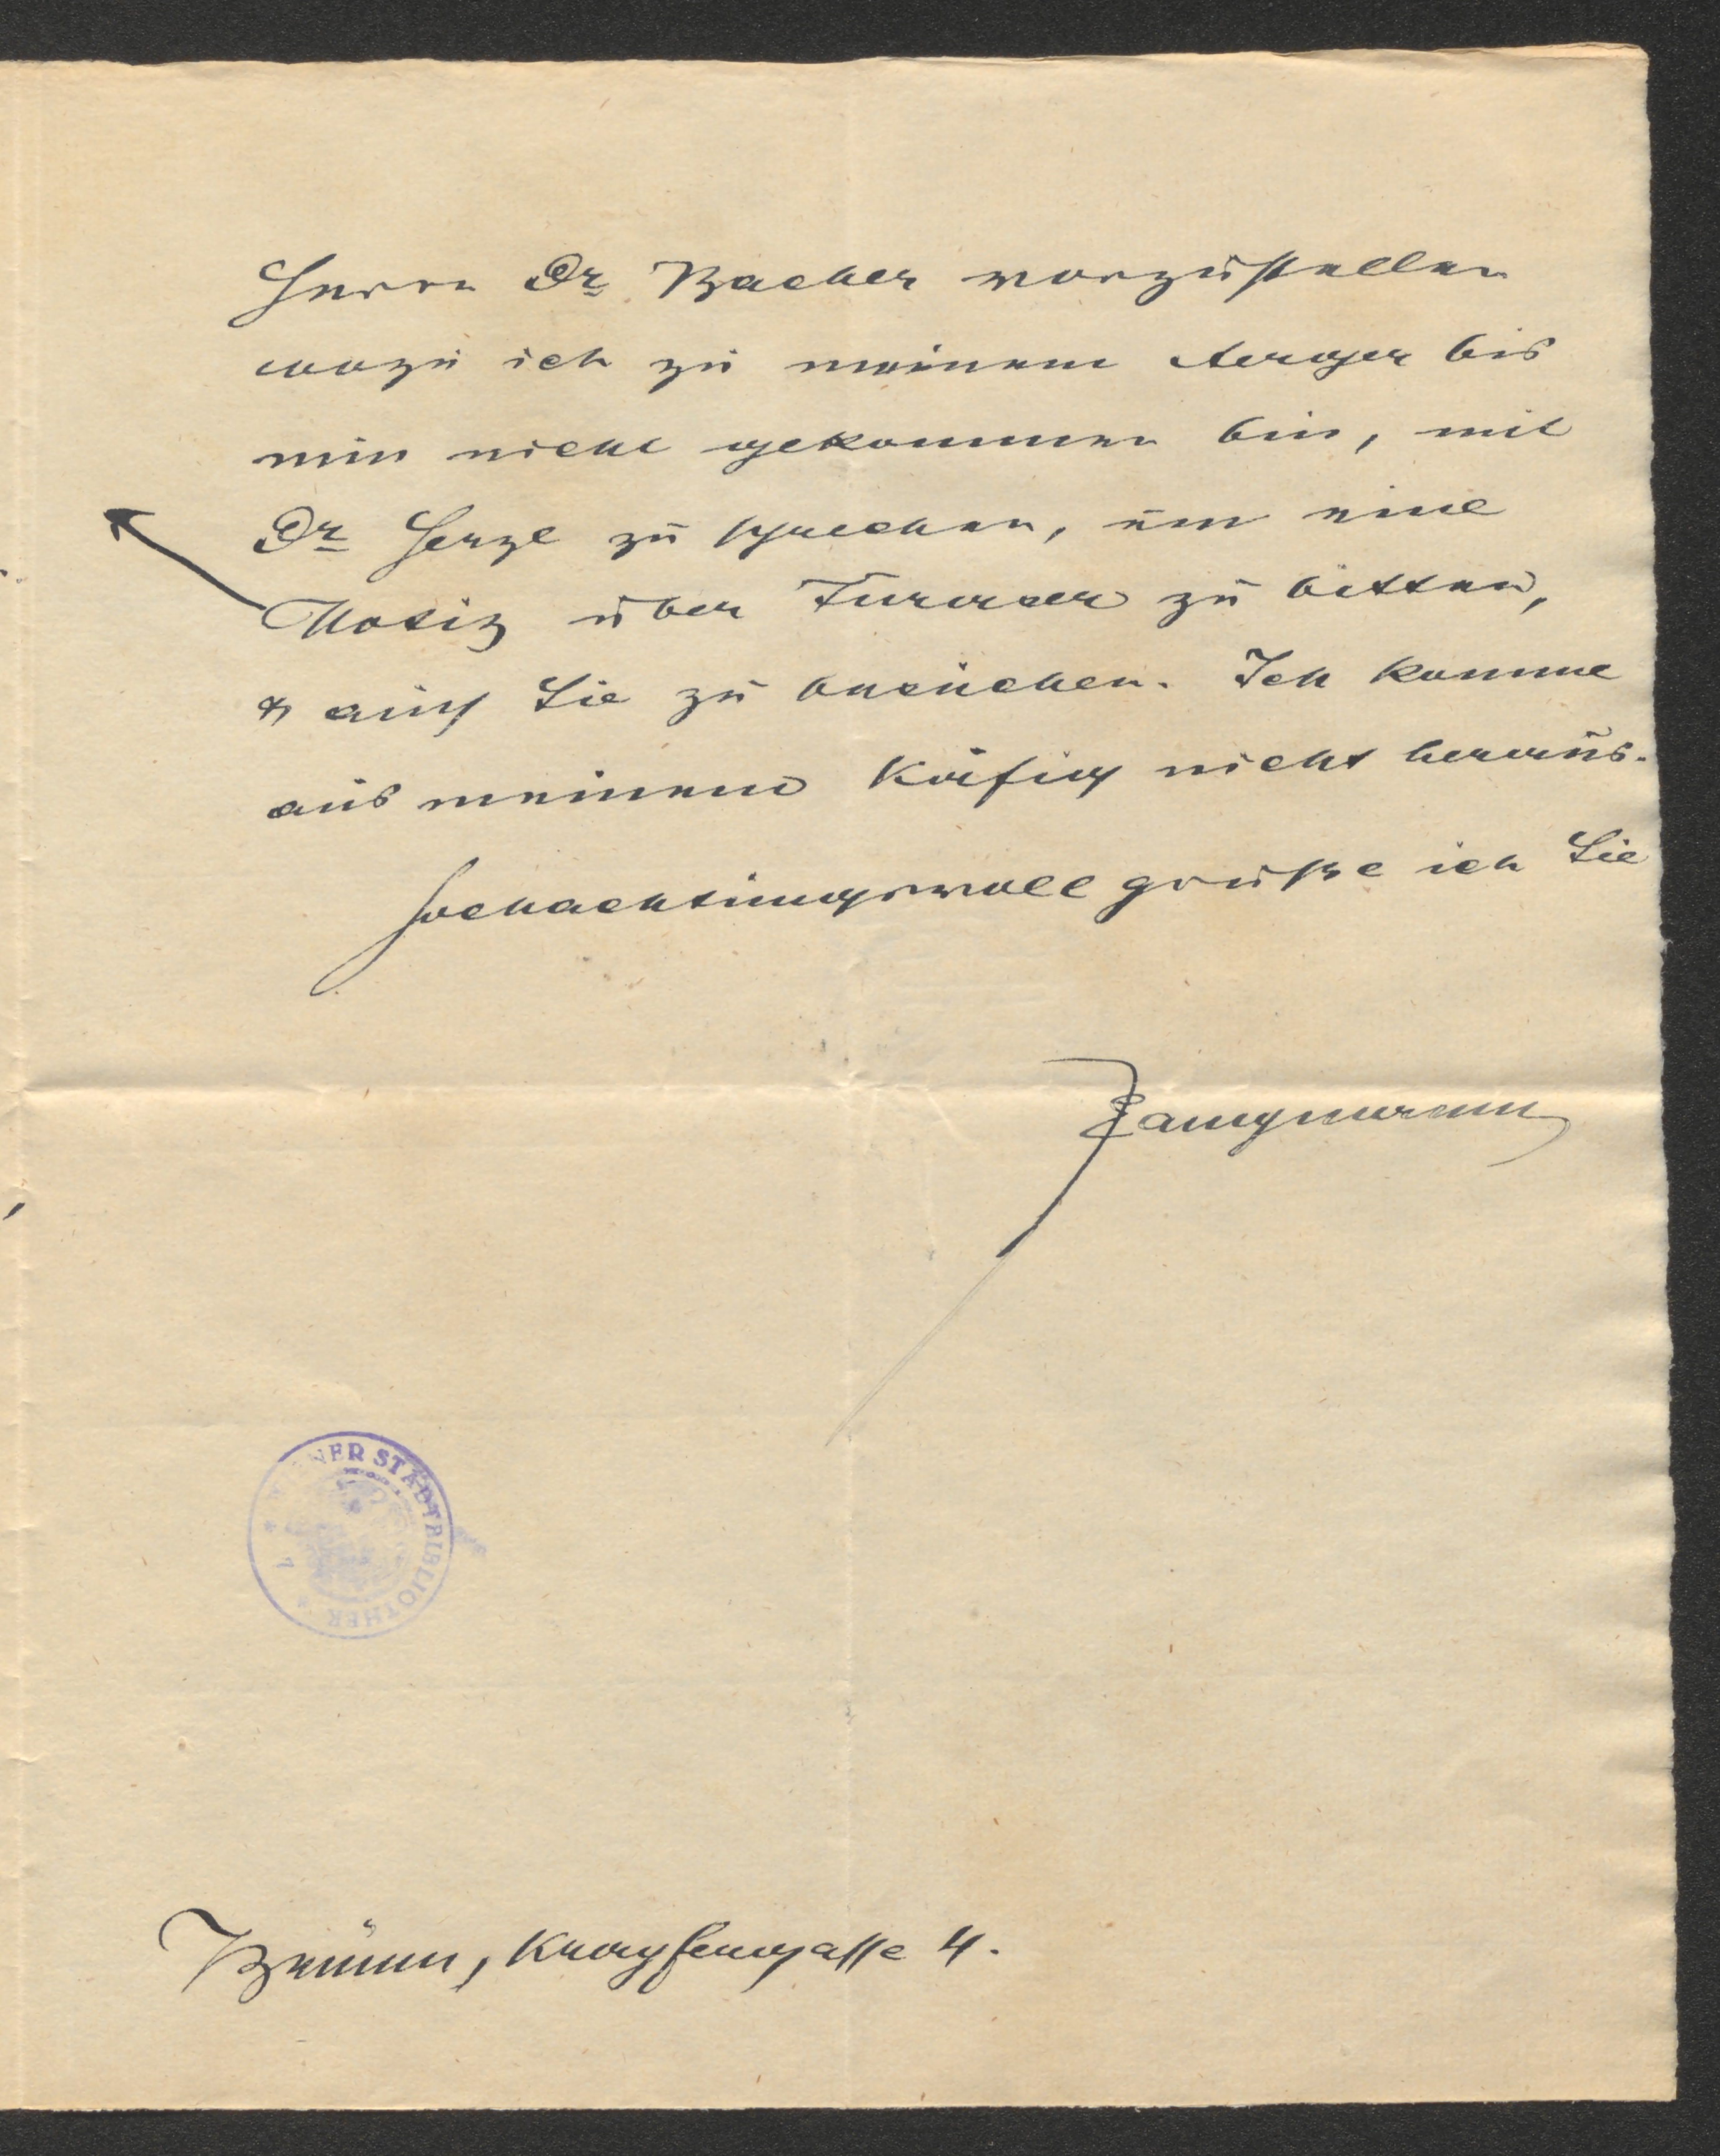 Herrn Dr. Bacher vorzustellen
wozu ich zu meinem Aerger bis
nun nicht gekommen bin, mit
Dr Herzl zu sprechen, um eine
Notiz über zu bitten,
& auch Sie zu besuchen. Ich komme
aus meinem Käfig nicht heraus.
Hochachtungsvoll grüße ich Sie
WIENER STADTBIBLIOTHEK
Brünn, 4.